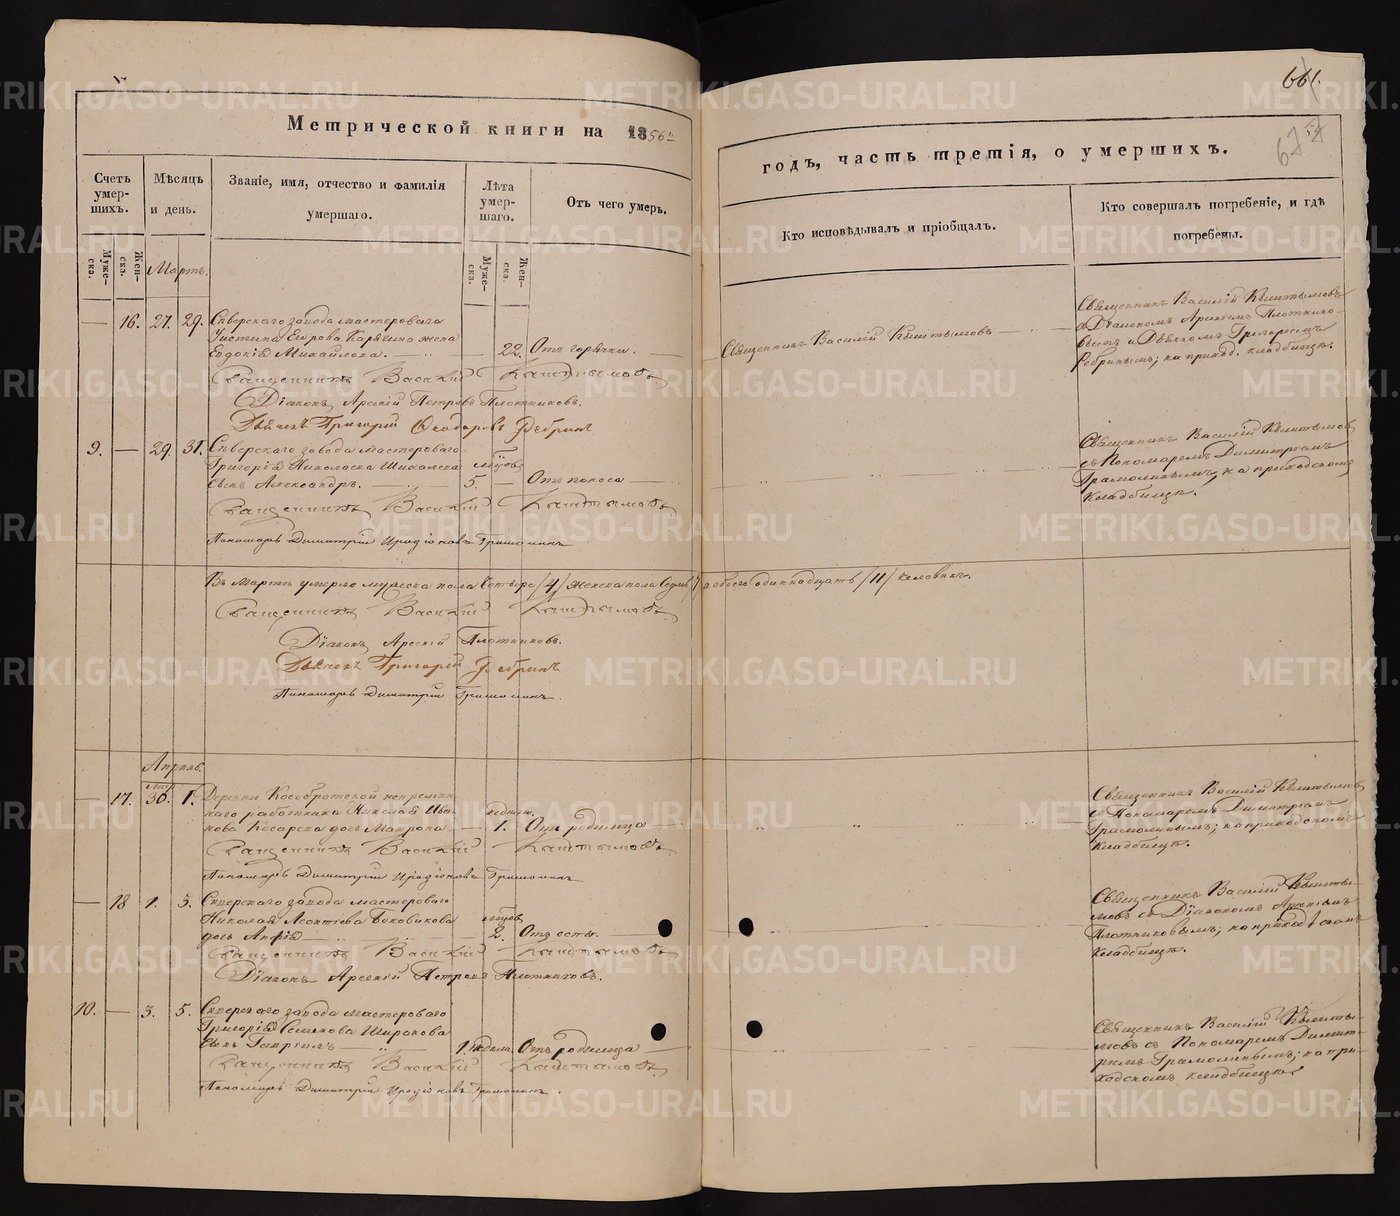 661.
67
57
Метрической книги на 1856й
годъ, часть третія, о умершихъ.
Счетъ умер-шихъ.
Мѣсяцъ и день.
Званіе, имя, отчество и фамилія умершаго.
Лѣта умер-шаго.
Отъ чего умеръ.
Кто исповѣдывалъ и пріобщалъ.
Кто совершалъ погребеніе, и гдѣ погребены.
Муже-ска.
Жен-ска.
Мартъ.
Муже-ска.
Жен-ска.
— 16. 27. 29. Сѣверскаго завода мастероваго
Устина Егорова жена
Евдокія Михайлова. — 22. Отъ горячки.
Священникъ Василій Кыштымовъ
Священникъ Василій Кыштымовъ
съ Діакономъ Арсеніемъ Плотнико-
вымъ и Дьячкомъ Григоріемъ
Ребринымъ; на приход. кладбищѣ.
Священникъ Василій Кыштымовъ
Діаконъ Арсеній Петровъ Плотниковъ.
Дьячекъ Григорій Ѳеодоровъ Ребринъ
9. — 29. 31. Сѣверскаго завода мастероваго
Григорія Николаева
сынъ Александръ. мѣсцовъ 5. — Отъ поноса
Священникъ Василій Кыштымовъ
съ Пономаремъ Димитріемъ
Грамолинымъ, на приходскомъ
кладбищѣ.
Священникъ Василій Кыштымовъ
Пономарь Димитрій Иродіоновъ Грамолинъ
Въ Мартѣ умерло мужеска пола четыре /4/ женска пола седмь /7/ а обоего одиннадцать /11/ человѣкъ.
Священникъ Василій Кыштымовъ
Діаконъ Арсеній Плотниковъ.
Дьячекъ Григорій Ребринъ
Пономарь Димитрій Грамолинъ.
Апрѣль.
Мар.
— 17. 30. 1. Деревни Кособродской непремѣн-
наго работника Николая Ива-
нова Косарева дочь Матрона — недѣли 1. Отъ родимца
Священникъ Василій Кыштымовъ
съ Пономаремъ Димитріемъ
Грамолинымъ; на приходскомъ
кладбищѣ.
Священникъ Василій Кыштымовъ
Пономарь Димитрій Иродіоновъ Грамолинъ
— 18 1. 3. Сѣверскаго завода мастероваго
Николая Леонтьева Боковикова
дочь Анфія мѣсцовъ 2. Отъ оспы.
Священникъ Василій Кышты-
мовъ съ Діакономъ Арсеніемъ
Плотниковымъ; на приходскомъ
кладбищѣ.
Священникъ Василій Кыштымовъ
Діаконъ Арсеній Петровъ Плотниковъ.
10. — 3. 5. Сѣверскаго завода мастероваго
Григорія Семенова Широкова
сынъ Гавріилъ 1. недѣли. Отъ родимца
Священникъ Василій Кышты-
мовъ съ Пономаремъ Димит-
ріемъ Грамолинымъ; на при-
ходскомъ кладбищѣ.
Священникъ Василій Кыштымовъ
Пономарь Димитрій Иродіоновъ Грамолинъ.
METRIKI.GASO-URAL.RU